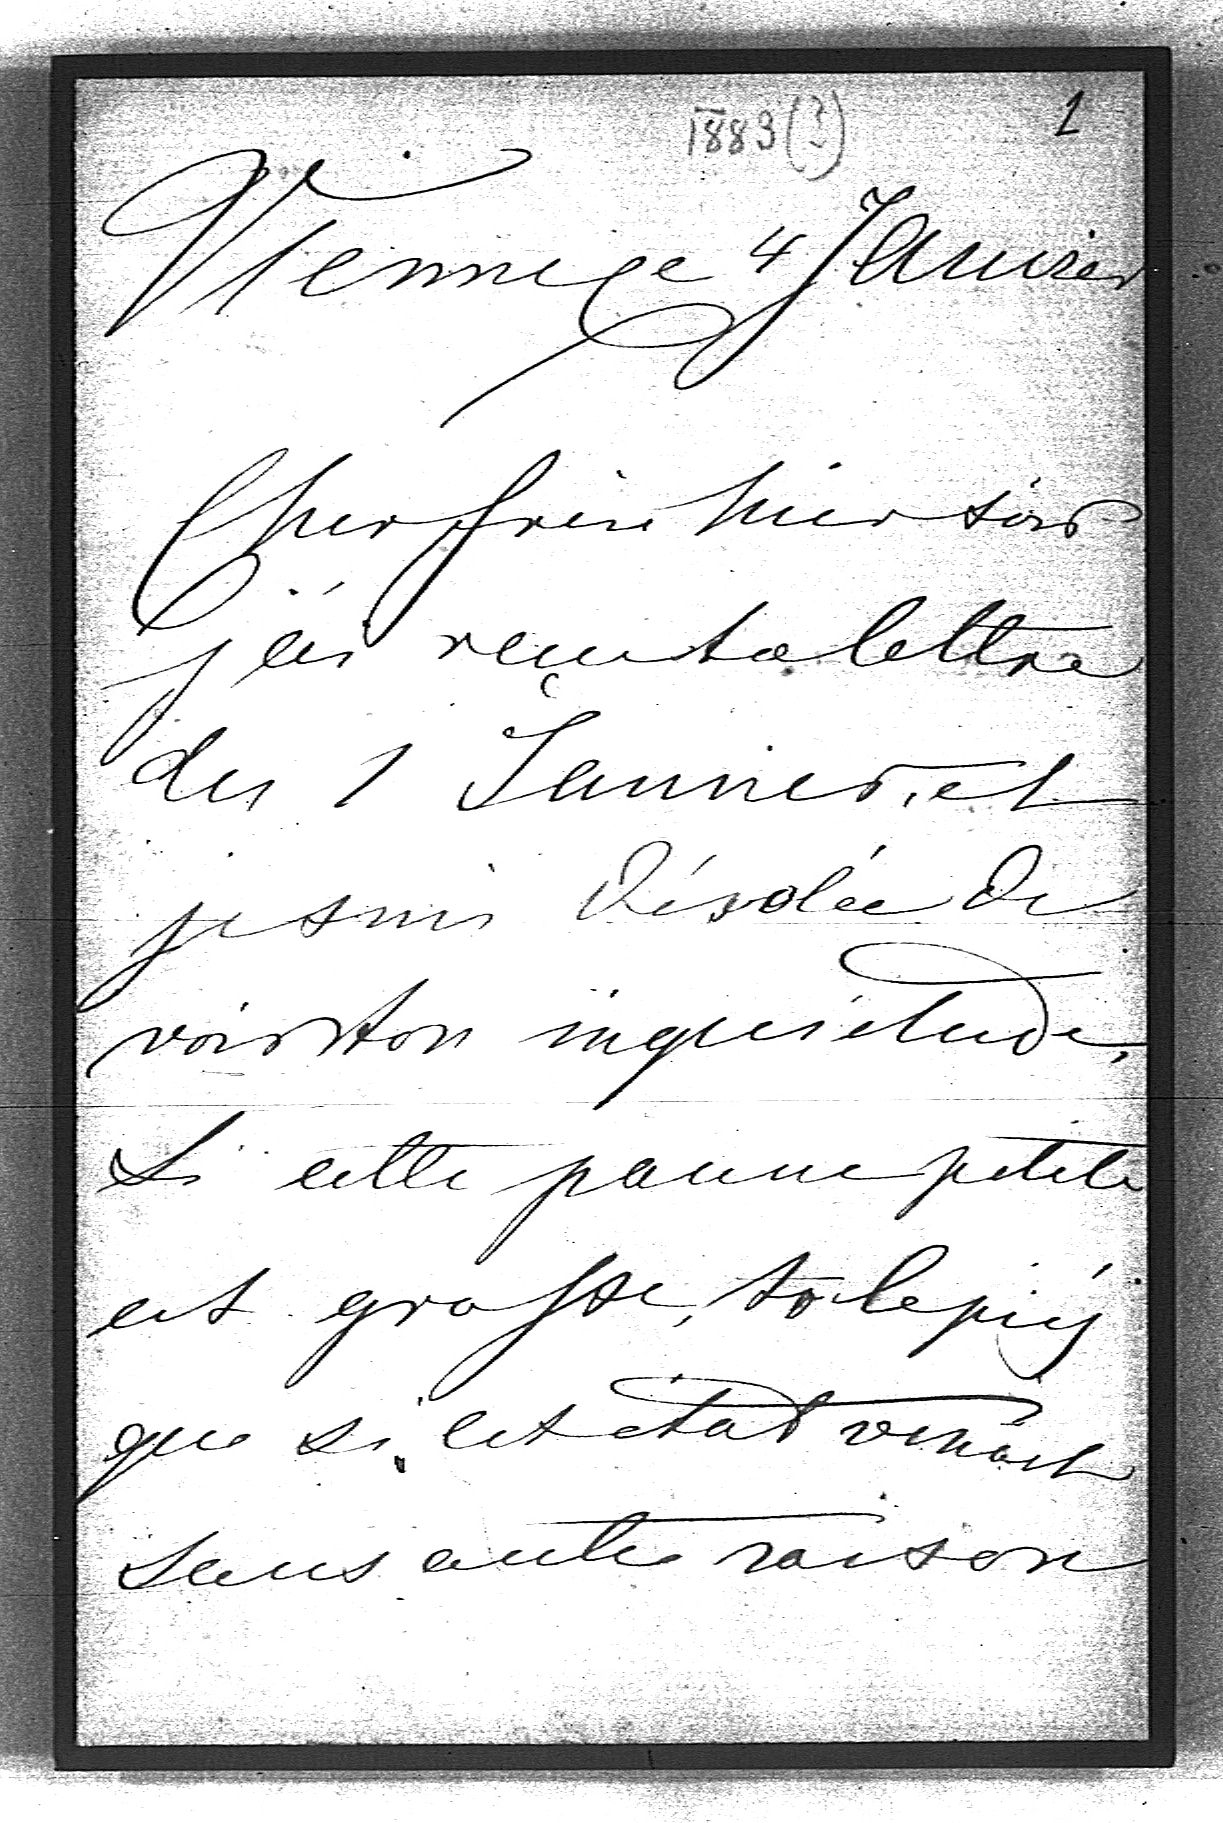 1883(?) 1
Vienne ce 4 Janvier
Cher frère hier soir
j'ai reçu ta lettre
du 1 Janvier, et
je suis désolée de
voir ton inquiétude,
Si cette pauvre petite
est grosse,
que si cet état venait
sans autre raison